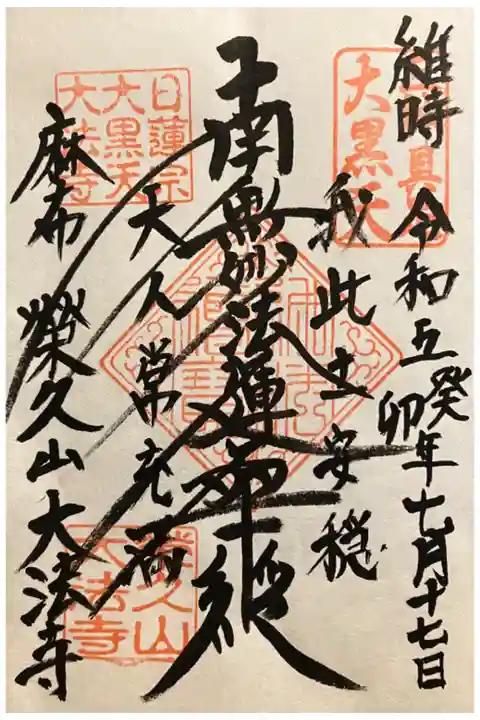 維時令和五癸卯年七月十七日
我此土安穏
南無妙法蓮華経
天人常充満
麻布 榮久山大法寺
大黒天
日蓮宗
大黒天
大法寺
榮久山
大法寺